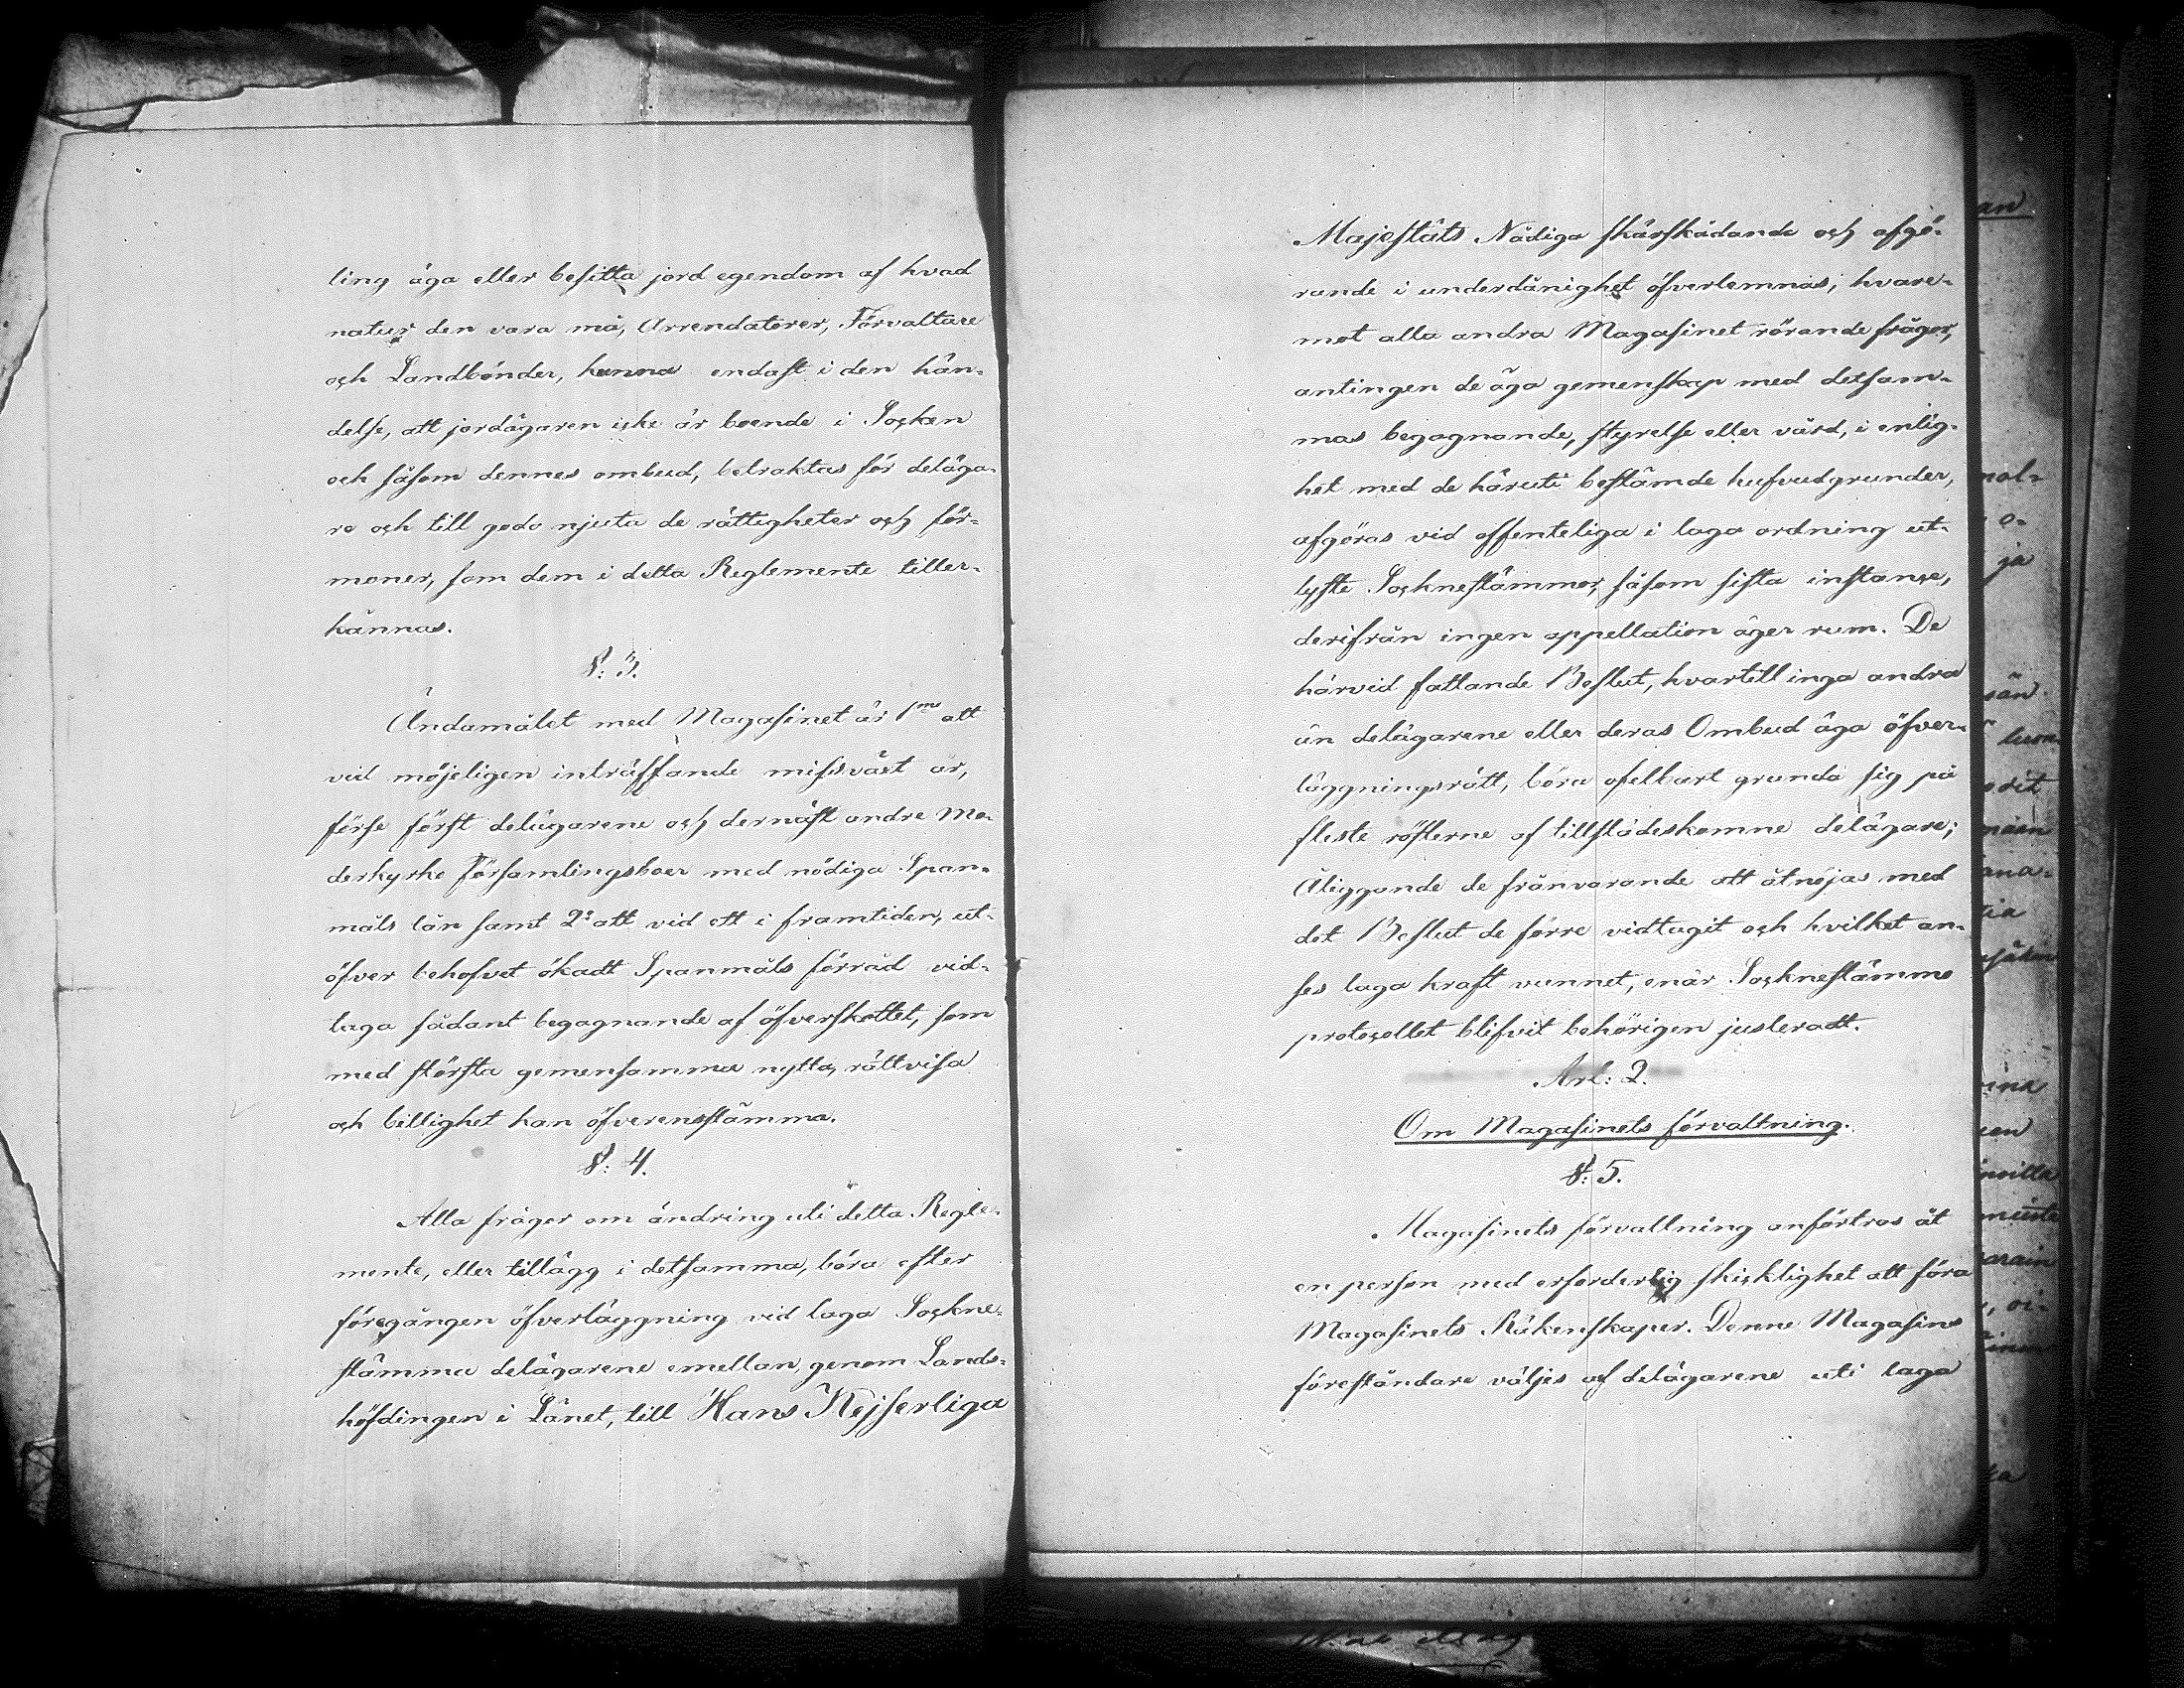 ling äga eller besitta jord egendom af hvad
natur den vara må, Arrendatorer, Förvaltare
och Landbönder, kunna endast i den hän-
delse, att jordägaren icke är boende i Socken
och såsom dennes ombud, betraktas för deläga-
re och till godo njuta de rättigheter och för-
moner, som dem i detta Reglemente tiller-
kännas.
§: 3.
Ändamålet med Magasinet är 1mo att
vid möjeligen inträffande missväxt år,
förse först delägarene och dernäst andre Mo-
derkyrko Församlingsboer med nödiga Span-
måls lån samt 2o att vid ett i framtiden, ut-
öfver behofvet ökadt Spanmåls förråd vid-
taga sådant begagnande af öfverskottet, som
med största gemensamma nytta, rättvisa
och billighet kan öfverensstämma.
§: 4.
Alla frågor om ändring uti detta Regle-
mente, eller tillägg i detsamma, böra efter
föregången öfverläggning vid laga Sockne-
stämma delägarene emellan, genom Lands-
höfdingen i Länet, till Hans Kejserliga
Majestäts Nådiga skärskådande och afgö-
rande i underdånighet öfverlemnas; hvare-
mot alla andra Magasinet rörande frågor,
antingen de äga gemenskap med detsam-
mas begagnande, styrelse eller vård, i enlig-
het med de häruti bestämde hufvudgrunder,
afgöras vid offenteliga i laga ordning ut-
lyste Socknestämmor, såsom sista instance,
derifrån ingen appellation äger rum. De
härvid fattande Beslut, hvartill inga andra
än delägarene eller deras Ombud äga öfver-
läggningsrätt, böra ofelbart grunda sig på
fleste rösterne af tillstädeskomne delägare;
Åliggande de frånvarande att åtnöjas med
det Beslut de förre vidtagit och hvilket an-
ses laga kraft vunnet, enär Socknestämmo
protocollet blifvit behörigen justeradt.
Art: 2.
Om Magasinets förvaltning.
§: 5.
Magasinets förvaltning anförtros åt
en person med erforderlig skicklighet att föra
Magasinets Räkenskaper. Denne Magasins
föreståndare väljes af delägarene uti laga